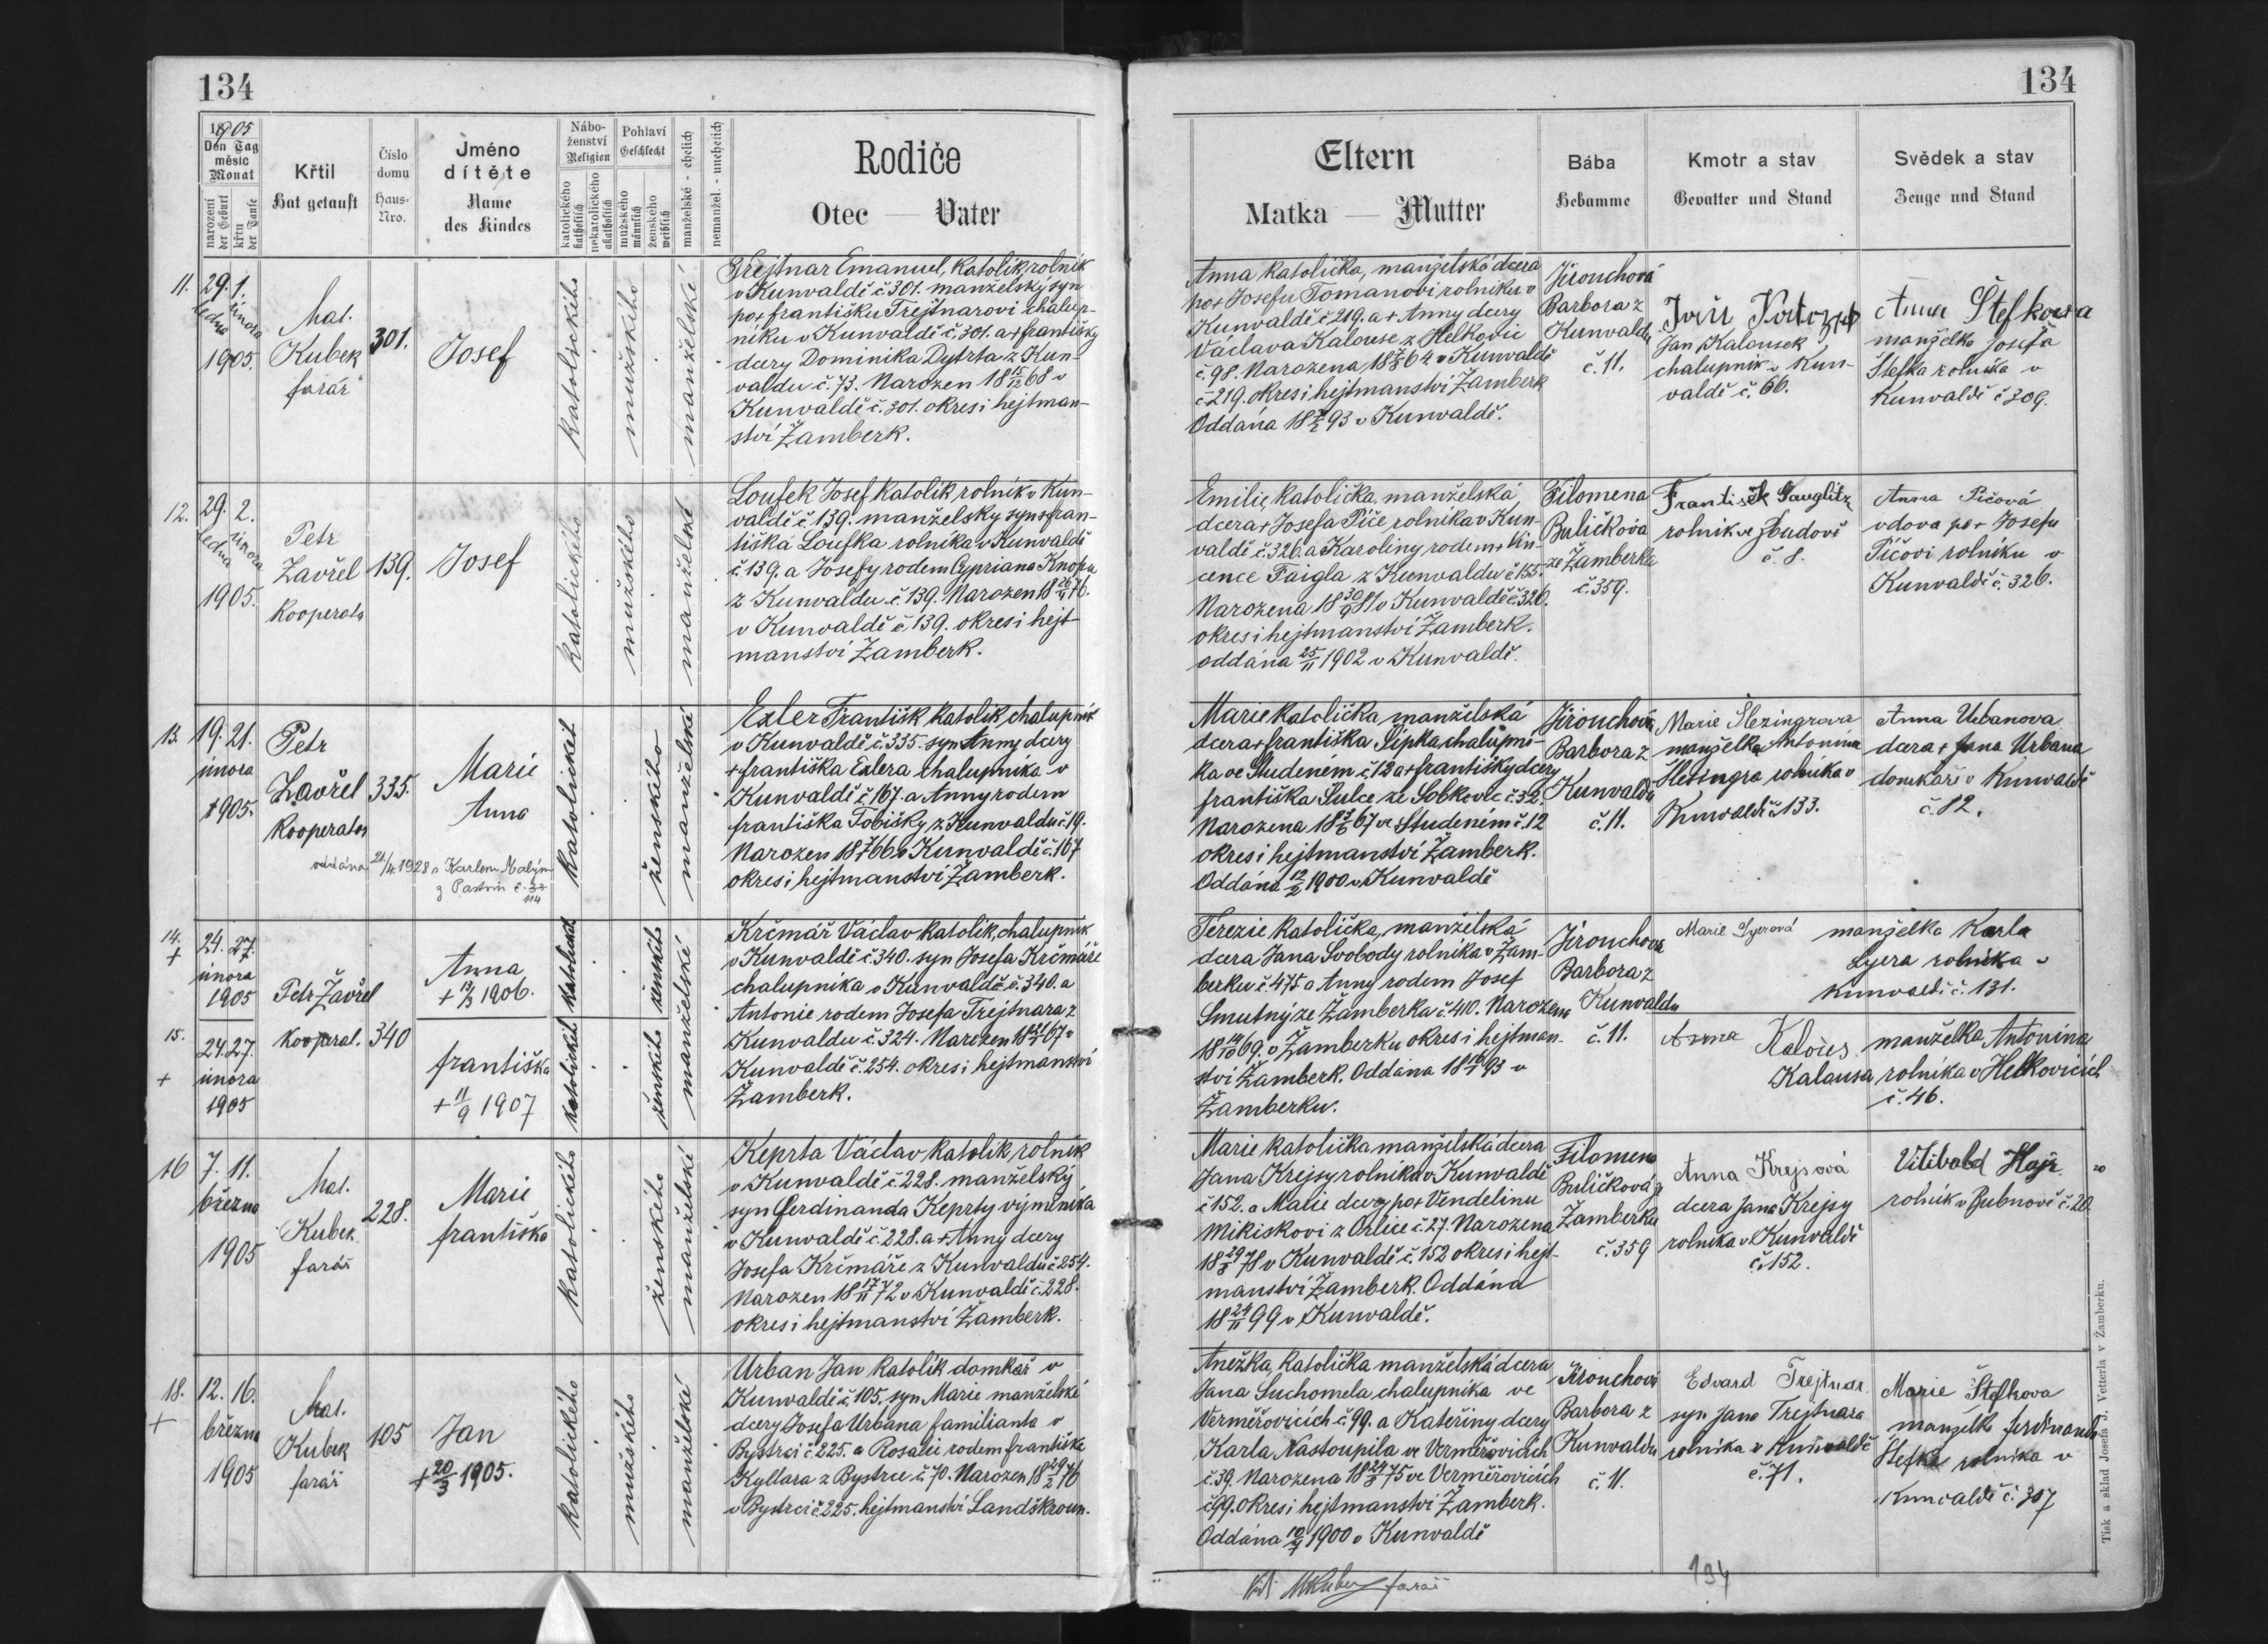 134
1905
Den Tag
měsíc
Monat
narození
der Geburt
křtu
der Taufe
Křtil
Hat getauft
Číslo
domu
Haus-
Nro.
Jméno
dítěte
Name
des Kindes
Nábo-
ženství
Religion
katolického
katholisch
nekatolického
akatholisch
Pohlaví
Geschlecht
mužského
männlich
ženského
weiblich
manželské - ehelich
nemanžel. - unehelich
Rodiče
Otec — Vater
11.
29. 1.
ledna února
1905.
Mat.
Kubek
farář
301.
Josef
katolického
mužského
manželské
Trejtnar Emanuel, katolík, rolník
v Kunvaldě č 301. manželský syn
po + františku Trejtnarovi chalup-
níku v Kunvaldě č. 301. a + františky
dcery Dominika Dytrta z Kun-
valdu č. 73. Narozen 18 15/12 68 v
Kunvaldě č. 301. okres i hejtman-
ství Žamberk.
12.
29. 2.
ledna února
1905.
Petr
Zavřel
kooperator
139.
Josef
katolického
mužského
manželské
Loufek Josef katolík, rolník v Kun-
valdě č 139. manželský syn fran-
tiška Loufka rolníka v Kunvaldě
č. 139. a Josefy rodem Cypriana Knopa
z Kunvaldu č. 139. Narozen 18 76.
v Kunvaldě č. 139. okres i hejt-
manství Žamberk.
13.
19. 21.
února
1905.
Petr
Zavřel
kooperator
335.
Marie
Anna
oddána 21/4. 1928 s Karlem
z Pastvin č.
114
katolické
ženského
manželské
Exler František katolík, chalupník
v Kunvaldě č. 335. syn Anny dcery
+ františka Exlera chalupníka v
Kunvaldě č. 167. a Anny rodem
františka Tobišky z Kunvaldu č. 19.
Narozen 18 66 v Kunvaldě č. 167
okres i hejtmanství Žamberk.
14.
+
24. 27.
února
1905
Petr Zavřel
kooperat.
340
Anna
+ 13/3 1906.
katolické
ženského
manželské
Krčmář Václav katolík, chalupník
v Kunvaldě č. 340. syn Josefa Krčmáře
chalupníka v Kunvaldě č. 340. a
Antonie rodem Josefa Trejtnara z
Kunvaldu č. 324. Narozen 18 67 v
Kunvaldě č. 254. okres i hejtmanství
Žamberk.
15.
+
24. 27.
února
1905
františka
+ 11/9 1907
katolické
ženského
manželské
16
7. 11.
března
1905
Mat.
Kubek
farář
228.
Marie
františka
katolického
ženského
manželské
Keprta Václav katolík, rolník
v Kunvaldě č 228. manželský
syn Ferdinanda Keprty výměníka
v Kunvaldě č. 228. a + Anny dcery
Josefa Krčmáře z Kunvaldu č 254.
Narozen 18 17/11 72 v Kunvaldě č. 228.
okres i hejtmanství Žamberk.
18.
+
12. 16.
března
1905
Mat.
Kubek
farář
105
Jan
+ 20/3 1905.
katolického
mužského
manželské
Urban Jan katolík domkář v
Kunvaldě č. 105. syn Marie manželské
dcery Josefa Urbana familianta v
Bystrci č. 225. a Rosalie rodem františka
Kyllara z Bystrce č. 70. Narozen 18 29/2 76
v Bystrci č. 225. hejtmanství Landškroun.
134
Eltern
Matka — Mutter
Bába
Hebamme
Kmotr a stav
Gevatter und Stand
Svědek a stav
Zeuge und Stand
Anna katolička, manželská dcera
po + Josefu Tomanovi rolníku v
Kunvaldě č 219. a + Anny dcery
Václava Kalouse z Helkovic
č. 98. Narozena 18 64 v Kunvaldě
č 219. okres i hejtmanství Žamberk
Oddána 18 93 v Kunvaldě.
Jirouchová
Barbora z
Kunvaldu
č. 11.
Jan Kalousek
chalupník v Kun-
valdě č. 66.
Anna Štefkova
manželka Josefa
Štefka rolníka v
Kunvaldě č 309.
Emilie, katolička, manželská
dcera + Josefa Píče rolníka v Kun-
valdě č. 326. a Karoliny rodem + Vin-
cence Faigla z Kunvaldu č 155.
Narozena 18 30/9 81 v Kunvaldě č. 326.
okres i hejtmanství Žamberk.
oddána 25/11 1902 v Kunvaldě.
Filomena
Buličkova
ze Žamberka
č. 359.
František
rolník ve
č. 8.
Anna Píčová
vdova po + Josefu
Píčovi rolníku v
Kunvaldě č. 326.
Marie katolička, manželská
dcera + františka Šípka chalupní-
ka ve Studeném č 12 a + františky dcery
františka Šulce ze Sobkovic č. 32.
Narozena 18 67 ve Studeném č. 12
okres i hejtmanství Žamberk.
Oddána 12/2 1900 v Kunvaldě
Jirouchová
Barbora z
Kunvaldu
č. 11.
Marie Šlezingrova
manželka Antonína
Šlezingra rolníka v
Kunvaldě č. 133.
Anna Urbanova
dcera + Jana Urbana
domkáře v Kunvaldě
č. 12.
Terezie katolička, manželská
dcera Jana Svobody rolníka v Žam-
berku č. 475 a Anny rodem Josef
Smutný ze Žamberka č. 410. Narozena
18 69. v Žamberku okres i hejtman-
ství Žamberk. Oddána 18 93 v
Žamberku.
Jirouchova
Barbora z
Kunvaldu
č. 11.
Marie Lyerová manželka Karla
Lyera rolníka v
Kunvaldě č. 131.
Anna Kalous. manželka Antonína
Kalousa rolníka v Helkovicích
č. 46.
Marie katolička manželská dcera
Jana Krejsy rolníka v Kunvaldě
č 152. a Marie dcery po + Vendelinu
Mikiskovi z Orlice č. 27. Narozena
18 29/8 78 v Kunvaldě č. 152 okres i hejt-
manství Žamberk. Oddána
18 99 v Kunvaldě.
Filomena
Buličková z
Žamberku
č. 359
Anna Krejsová
dcera Jana Krejsy
rolníka v Kunvaldě
č. 152.
Vilibald
rolník v Bubnově č. 20.
Anežka, katolička manželská dcera
Jana Suchomela, chalupníka ve
Verměřovicích č. 99. a Kateřiny dcery
Karla Nastoupila ve Verměřovicích
č. 39. Narozena 18 24/8 75 ve Verměřovicích
č. 99. okres i hejtmanství Žamberk.
Oddána 1900 v Kunvaldě
Jirouchová
Barbora z
Kunvaldu
č. 11.
Edvard Trejtnar
syn Jana Trejtnara
rolníka v Kunvaldě
č. 71.
Marie Štefkova
manželka ferdinanda
Štefka rolníka v
Kunvaldě č. 307
MKubek farář
134
Tisk a sklad Josefa J. Vetterla v Žamberku.